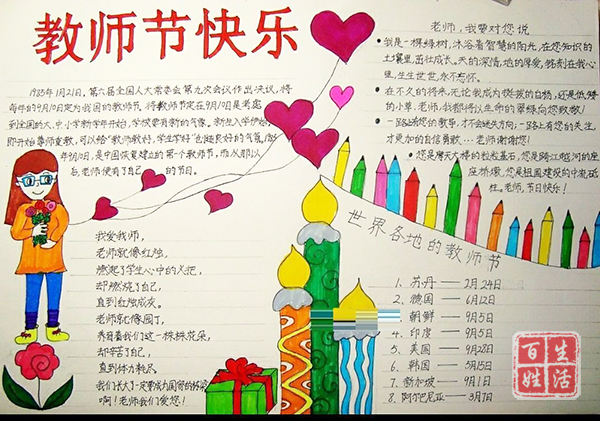 教师节快乐
1985年1月21日,第六届全国人大常委会第九次会议作出决议,将
每年的9月10日定为我国的教师节.将教师节定在9月10日是考虑
到全国的大、中小学新学年开始,学校要有新的气象。新生入学伊始,
即开始尊师重教,可以给“教师教好,学生学好”创造良好的气氛。
年9月10日,是中国恢复建立的第一个教师节,而从那以
后,老师便有了自己的节日。
我爱我师,
老师就像红烛,
燃起了学生心中的火把,
却燃烧了自己,
直到红烛成灰。
老师就像园丁,
养育着我们这一株株花朵,
却辛苦了自己,
直到体力耗尽。
我们长大了一定要成为国家的栋梁
啊!老师我们爱您!
老师,我要对您说
我是一棵绿树,沐浴着智慧的阳光,在您知识的
土壤里,茁壮成长。天的深情,地的厚爱,铭刻在我心
里,生生世世,永不忘怀。
在不久的将来,无论我成为挺拔的白杨,还是低矮
的小草,老师,我都将以生命的翠绿向您致敬!
一路踏着您的教导,才不会迷失方向;一路上有您的关注,
才更加的自信勇敢……老师谢谢您!
您是摩天大楼的粒粒基石,您是跨江越河的座
座桥墩,您是祖国建设的中流砥
柱。老师,节日快乐!
世界各地的教师节
1、苏丹——2月24日
2、德国——6月12日
3、朝鲜——9月5日
4、印度——9月5日
5、美国——9月28日
6、韩国——5月15日
7、新加坡——9月1日
8、阿尔巴尼亚——3月7日
百姓生活